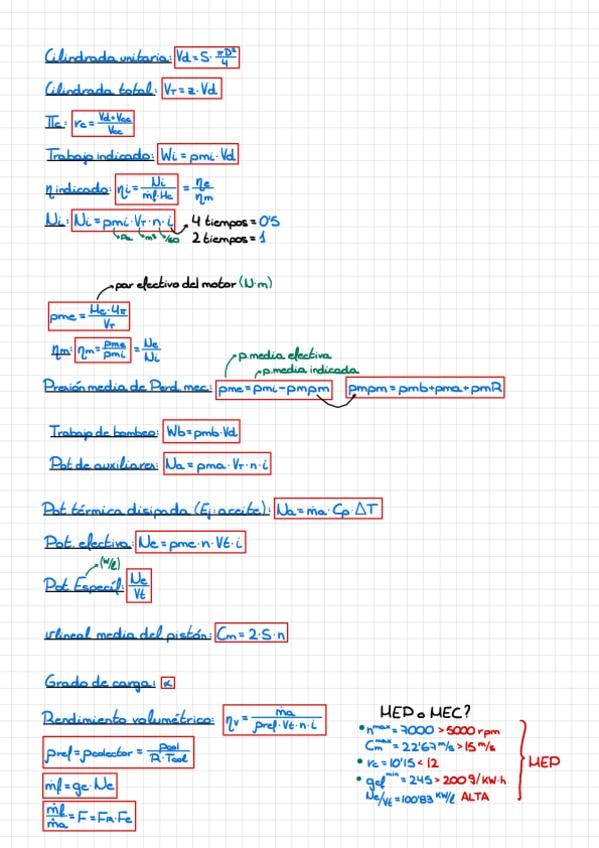 Cilindrada unitaria: Vd = S · πD²/4
Cilindrada total: V_T = z · Vd
Πc: rc = (Vd+Vcc)/Vcc
Trabajo indicado: Wi = pmi · Vd
η indicado: ηi = Ni/(ṁf · Hc) = ηe/ηm
Ni: Ni = pmi · V_T · n · i
4 tiempos = 0'5
Pa m³ 1/60 2 tiempos = 1
par efectivo del motor (N·m)
pme = (Me · 4π)/V_T
ηm: ηm = pme/pmi = Ne/Ni
p.media efectiva
p.media indicada
Presión media de Perd. mec: pme = pmi - pmpm pmpm = pmb + pma + pmR
Trabajo de bombeo: Wb = pmb · Vd
Pot de auxiliares: Na = pma · V_T · n · i
Pot térmica disipada (Ej: aceite): Na = ṁa · Cp · ΔT
Pot. efectiva: Ne = pme · n · Vt · i
(W/l)
Pot Específ: Ne/Vt
v lineal media del pistón: Cm = 2 · S · n
Grado de carga: α
Rendimiento volumétrico: ηv = ṁa/(ρref · Vt · n · i)
ρref = ρcolector = pcol/(R · Tcol)
ṁf = ge · Ne
ṁf/ṁa = F = F_R · Fe
MEP o MEC?
• n^max = 7000 > 5000 rpm
Cm^max = 22'67 m/s > 15 m/s
• rc = 10'15 < 12
• gef^min = 245 > 200 g/kW·h
Ne/Vt = 100'83 kW/l ALTA
MEP